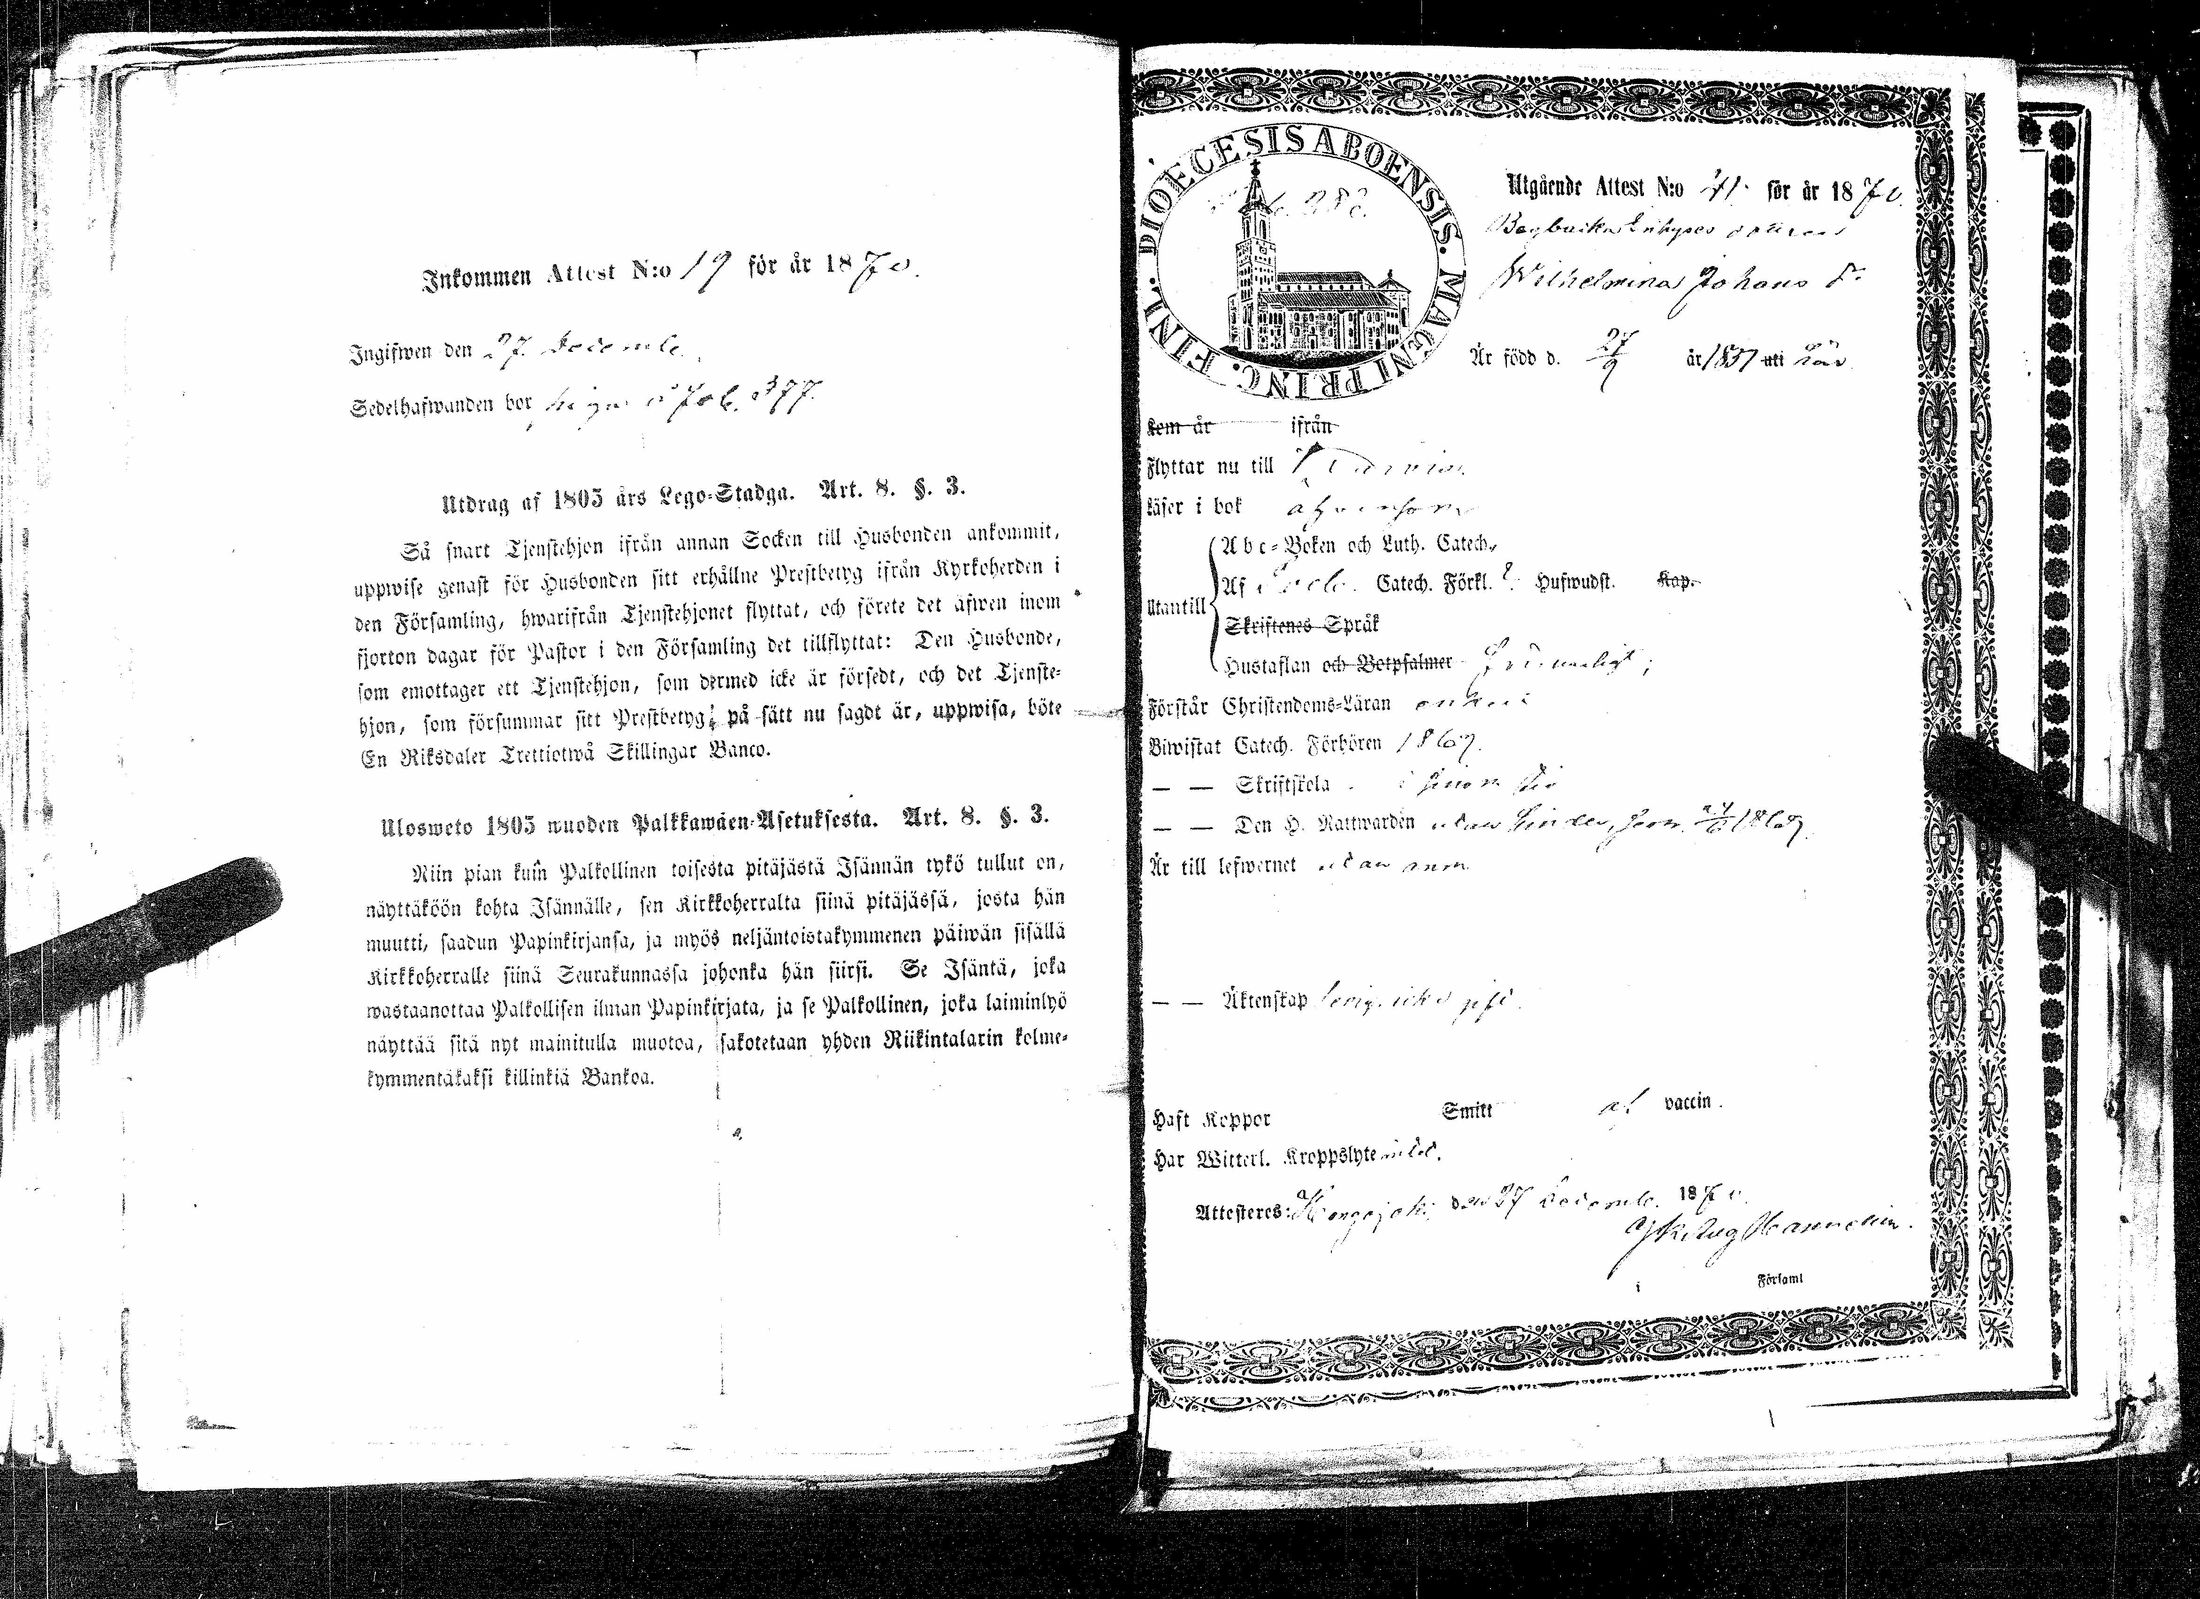 Inkommen Attest N:o 19 för år 1870.
Ingifwen den 27. Decemb.
Sedelhafwanden bor 377.
Utdrag af 1805 års Lego-Stadga. Art. 8. §. 3.
Så snart Tjenstehjon ifrån annan Socken till Husbonden ankommit,
uppwise genast för Husbonden sitt erhållne Prestbetyg ifrån Kyrkoherden i
den Församling, hwarifrån Tjenstehjonet flyttat, och förete det äfwen inom
fjorton dagar för Pastor i den Församling det tillflyttat: Den Husbonde,
som emottager ett Tjenstehjon, som dermed icke är försedt, och det Tjenste-
hjon, som försummar sitt Prestbetyg, på sätt nu sagdt är, uppwisa, böte
En Riksdaler Trettiotwå Skillingar Banco.
Ulosweto 1805 wuoden Palkkawäen-Asetuksesta. Art. 8. §. 3.
Niin pian kuin Palkollinen toisesta pitäjästä Isännän tykö tullut on,
näyttäköön kohta Isännälle, sen Kirkkoherralta siinä pitäjässä, josta hän
muutti, saadun Papinkirjansa, ja myös neljäntoistakymmenen päiwän sisällä
Kirkkoherralle siinä Seurakunnassa johonka hän siirsi. Se Isäntä, joka
wastaanottaa Palkollisen ilman Papinkirjata, ja se Palkollinen, joka laiminlyö
näyttää sitä nyt mainitulla muotoa, sakotetaan yhden Riikintalarin kolme-
kymmentäkaksi killinkiä Bankoa.
DIOECESIS ABOENSIS. MAGNI PRINC. FINL.
Utgående Attest N:o 41. för år 1870.
Wilhelmina Johans dr
Är född d. 27/9 år 1837 uti här
Kom år ifrån
Flyttar nu till
Läser i bok
Abc-Boken och Luth. Catech.
Utantill Af Catech. Förkl. Hufwudst. Kap.
Skriftenes Språk
Hustaflan och Botpsalmer
Förstår Christendoms-Läran
Biwistat Catech. Förhören 1869.
— — Skriftskola
— — Den H. Nattwarden utan hinder, 1869.
Är till lefwernet utan anm
— — Äktenskap ledig
Haft Koppor Smitt af vaccin.
Har Witterl. Kroppslyte intet.
Attesteres: den 27 Decemb. 1870.
i Församl